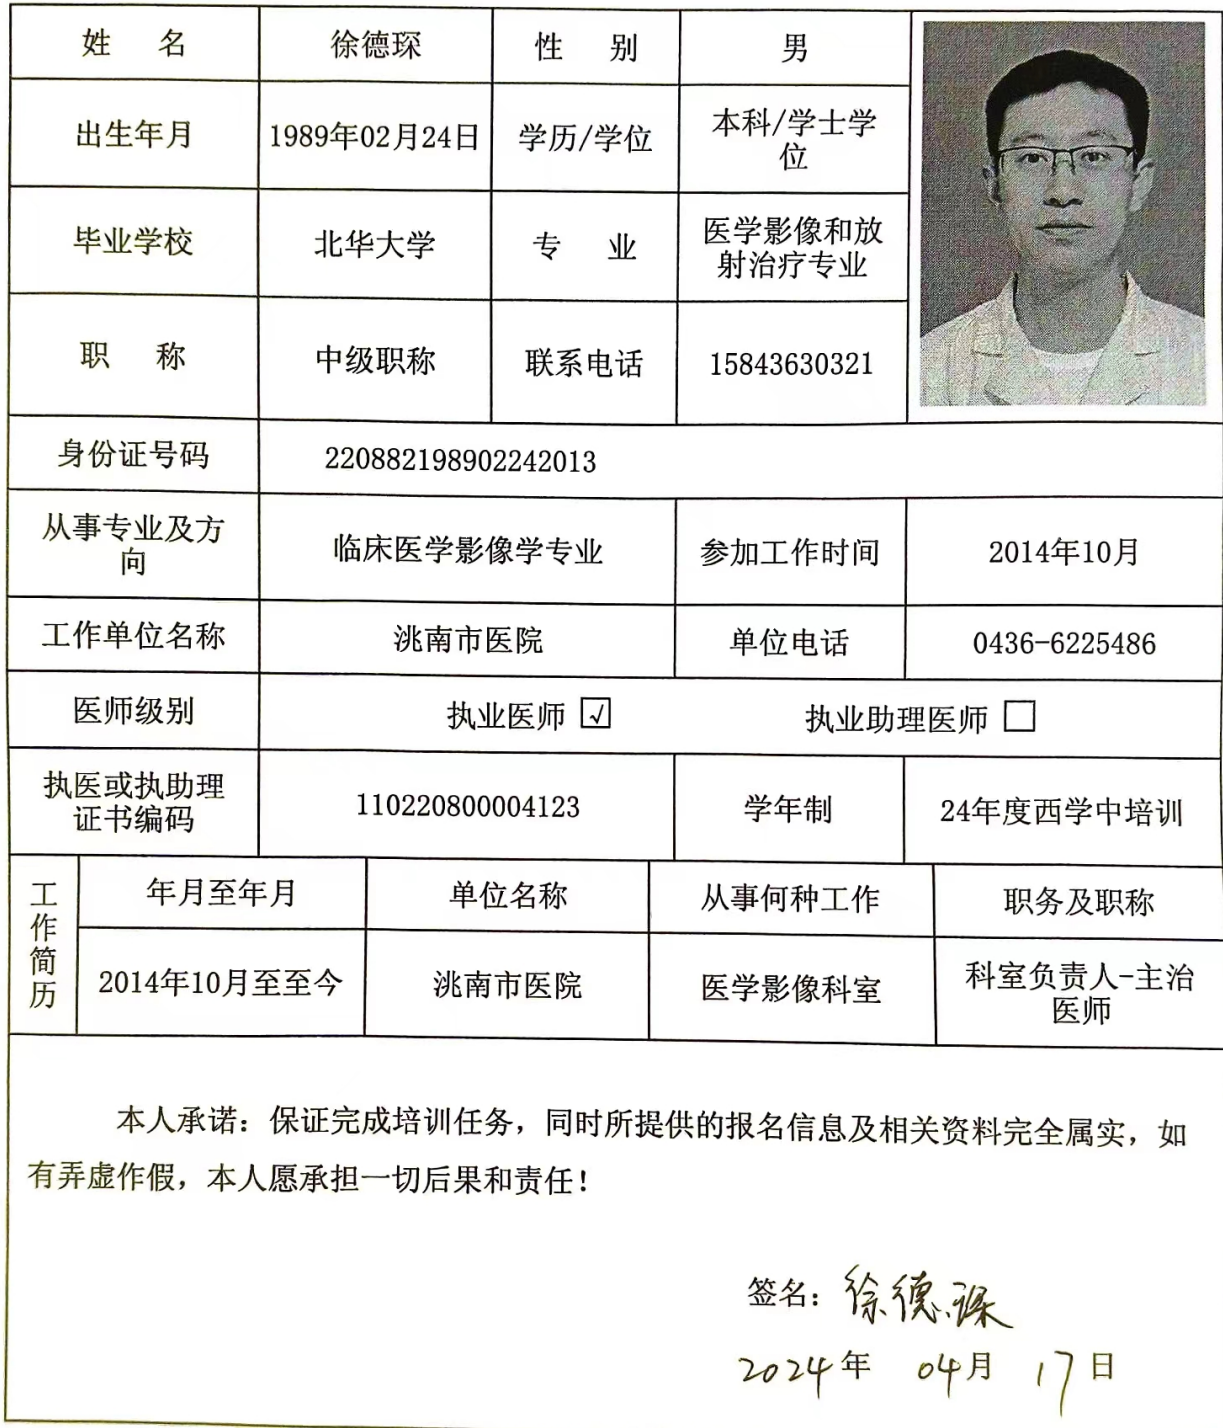 姓 名 徐德琛 性 别 男
出生年月 1989年02月24日 学历/学位 本科/学士学
位
毕业学校 北华大学 专 业 医学影像和放
射治疗专业
职 称 中级职称 联系电话 15843630321
身份证号码 220882198902242013
从事专业及方
向 临床医学影像学专业 参加工作时间 2014年10月
工作单位名称 洮南市医院 单位电话 0436-6225486
医师级别 执业医师 ☑ 执业助理医师 □
执医或执助理
证书编码 110220800004123 学年制 24年度西学中培训
工作简历
年月至年月 单位名称 从事何种工作 职务及职称
2014年10月至至今 洮南市医院 医学影像科室 科室负责人-主治
医师
本人承诺：保证完成培训任务，同时所提供的报名信息及相关资料完全属实，如
有弄虚作假，本人愿承担一切后果和责任！
签名：徐德琛
2024年 04月 17日